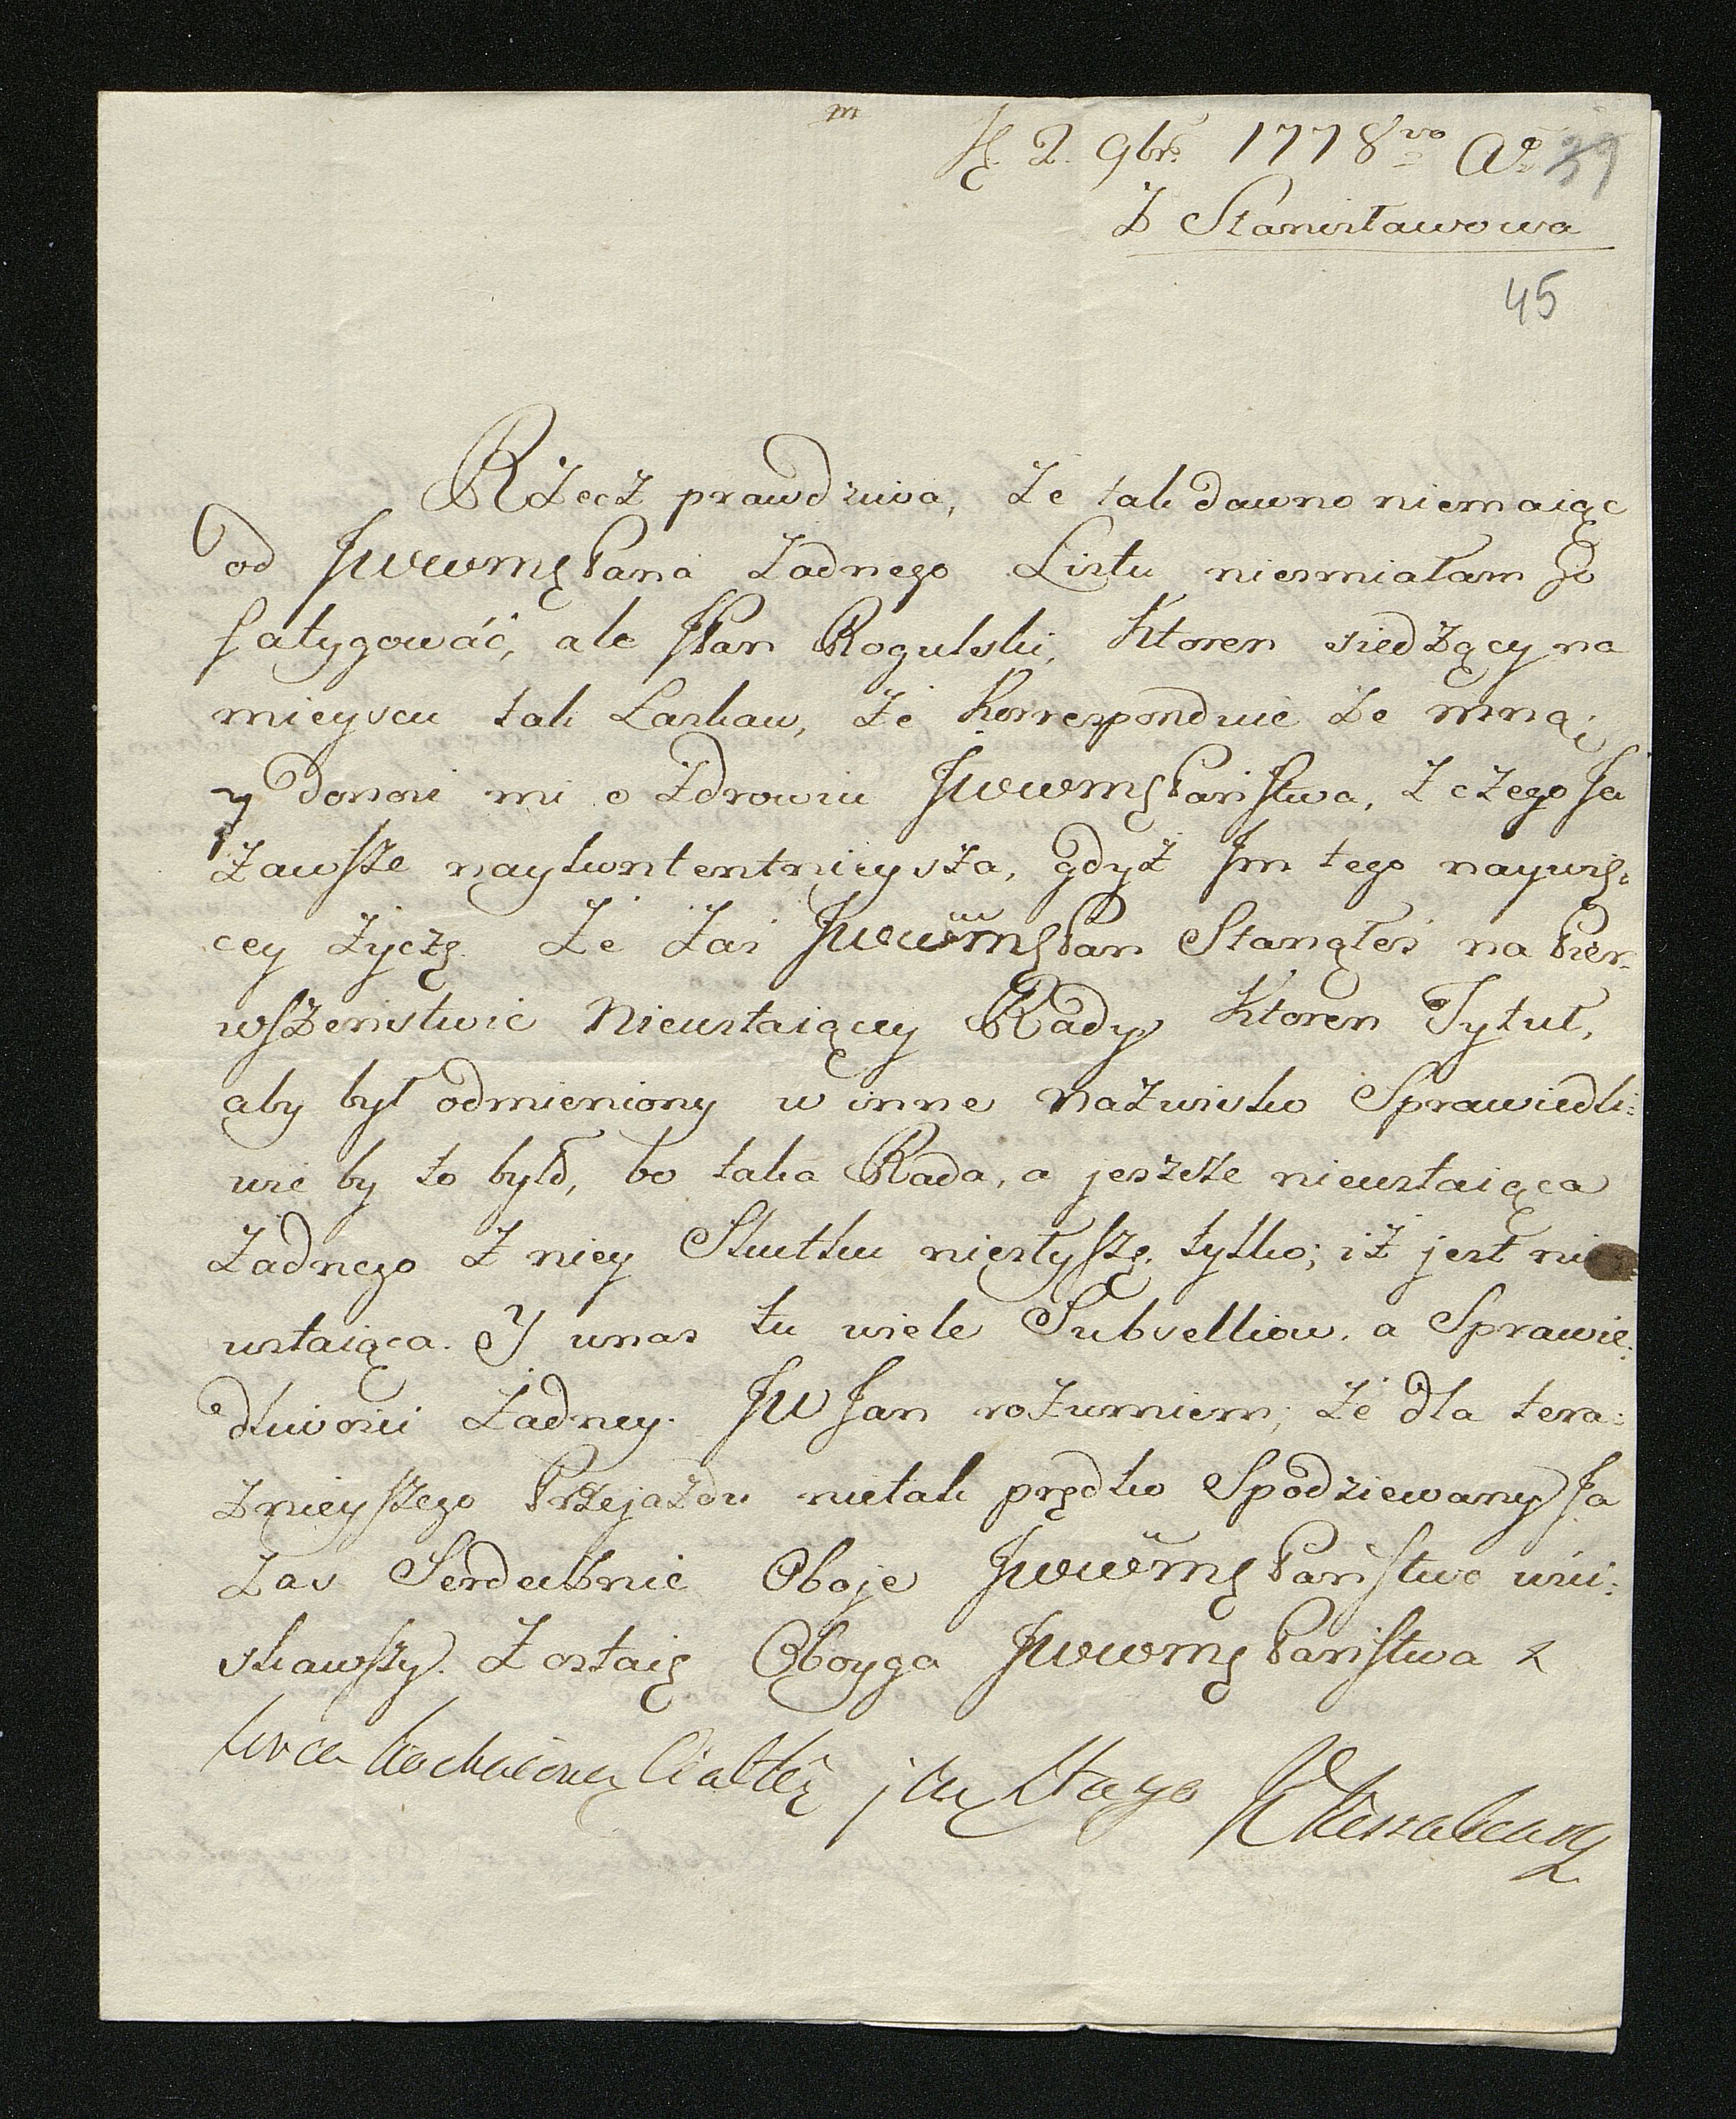 m
2. 9brs 1778vo Ao 39
Z Stanisławowa
45
RZecZ prawdziwa, Ze tak dawno niemaiąc
od JWWMęPana Zadnego Listu niesmiałam Jo
fatygowáć, ale JPan Rogulski, Ktoren siedZący na
mieyscu tak Laskaw, Ze Korresponduie Ze mną;
y donosi mi o Zdrowiu JWWMęPaństwa, Z cZego Ja
Zawsze naykontentnieysza, gdyZ Jm tego naywię:
cey Zyczę. Ze Zas JWWMęPan Stanąłes na Pier-
wszenstwie Nieustaiącey Rady Ktoren Tytuł,
aby był odmieniony w inne naZwisko Sprawiedli:
wie by to było, bo taka Rada, a jeszcze nieustaiąca
Zadnego Z niey Skutku niesłyszę, tylko; iZ jest nie
ustaiąca. Y unas tu wiele Subselliow, a Sprawie:
dliwosci Zadney. JW Jan roZumiem; Ze dla tera:
Znieyszego PrzejaZdu nietak prędko Spodziewany Ja
Zas Serdecznie Oboje JWWMęPaństwo uści:
skawszy. Zostaię Oboyga JWWMęPaństwa
kochaiącą Ciotką j Sługą Kossakowska